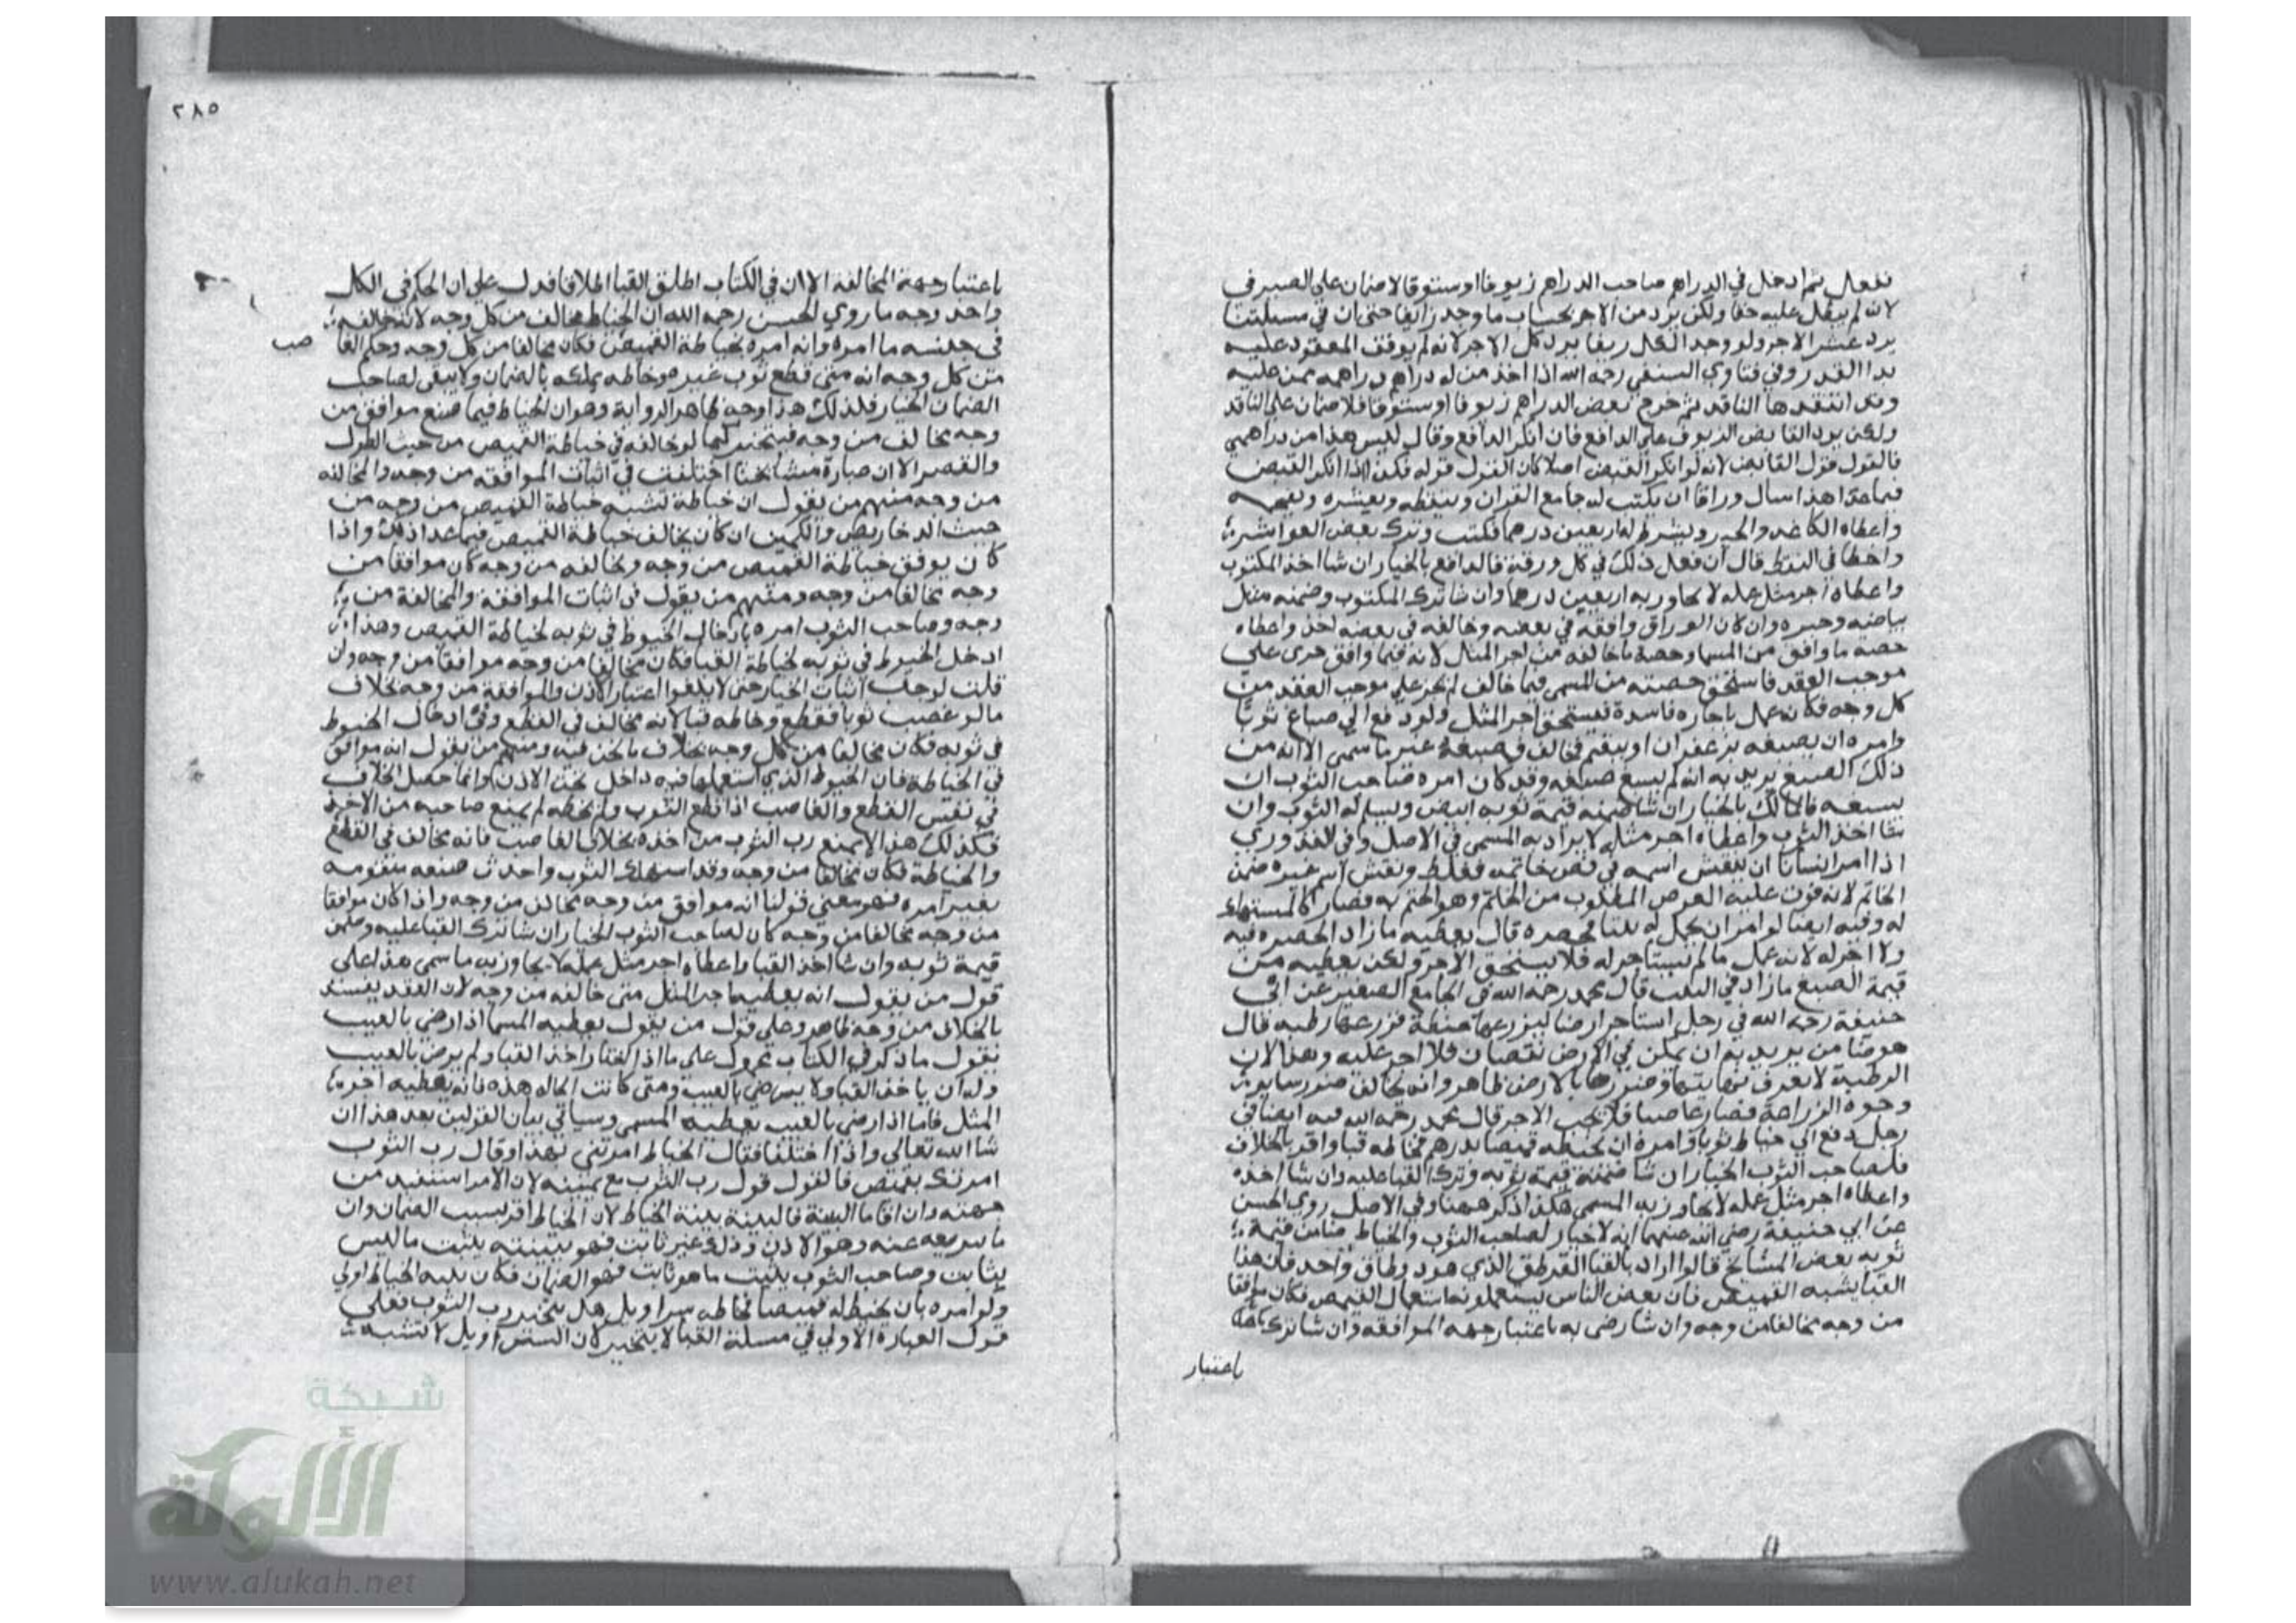 بفعل ثم ادخل في الدراهم صاحب الدراهم زيوفا اوستوقا لاضمان على الصيرفي
لانه لم يبطل عليه حقا ولكن يرد من الاجر بحساب ما وجد زايفا حتى ان في مسئلتنا
يرد عشر الاجر ولو وجد الكل زيفا يرد كل الاجر لانه لم يوف المعقود عليه
بدا القدر وفي فتاوي النسفي رحمه الله اذا اخذ من له دراهم دراهمه ممن عليه
وقد انتقدها الناقد ثم خرج بعض الدراهم زيوفا اوستوقا فلا ضمان على الناقد
ولكن يرد القابض الزيوف على الدافع فان انكر الدافع وقال ليس هذا من دراهمي
فالقول قول القابض لانه لو انكر القبض اصلا كان القول قوله فكذا اذا انكر القبض
فيما عدا هذا سال وراقا ان يكتب له جامع القران وينقطه ويعشره ويعجمه
واعطاه الكاغد والحبر ويشرط له اربعين درهما فكتب وترك بعض العواشر
واخطا في النقط قال ان فعل ذلك في كل ورقة فالدافع بالخيار ان شا اخذ المكتوب
واعطاه اجر مثل عمله لا يجاوز به اربعين درهما وان شا ترك المكتوب وضمنه مثل
بياضه وحبره وان كان الوراق وافقه في بعضه وخالفه في بعضه اخذ واعطاه
حصة ما وافق من المسما وحصة ما خالفه من اجر المثل لانه فيما وافق جرى على
موجب العقد فاستحق حصته من المسمى فيما خالف لم يجر على موجب العقد من
كل وجه فكانه عمل باجارة فاسدة فيستحق اجر المثل ولو دفع الي صباغ ثوبا
وامره ان يصبغه بزعفران او ببقم فخالف في صبغه غير ما سمى الا انه من
ذلك الصبغ يريد به انه لم يسبغ صبغه وقد كان امره صاحب الثوب ان
يسبعه فالمالك بالخيار ان شا ضمنه قيمة ثوبه ابيض ويسلم له الثوب وان
شا اخذ الثوب واعطاه اجر مثله لا يزاد به المسمى في الاصل وفي القدوري
اذا امر انسانا ان ينقش اسمه في فص خاتمه فغلط ونقش اسم غيره ضمن
الخاتم لانه فوت عليه الغرض المطلوب من الخاتم وهو الختم به فصار كالمستهلك
له وفيه ايضا لو امر ان يجمل له بيتا بحصره قال يعطيه ما زاد الحصره فيه
ولا اجر له لانه عمل ما لم يستاجر له فلا يستحق الاجر ولكن يعطيه من
قيمة الصبغ ما زاد في البيت قال محمد رحمه الله في الجامع الصغير عن ابي
حنيفة رحمه الله في رجل استاجر ارضا ليزرعها حنطة فزرعها رطبه قال
هو ضامن يريد به ان يمكن في الارض نقصان فلا اجر عليه وهذا لان
الرطبة لا يعرف نهايتها وضررها بالارض ظاهر وانه يخالف ضرر ساير
وجوه الزراعة فصار غاصبا فلا يجب الاجر قال محمد رحمه الله فيه ايضا في
رجل دفع الي خياط ثوبا وامره ان يخيطه قميصا بدرهم فخاطه قبا واقر بالخلاف
فلصاحب الثوب الخيار ان شا ضمنه قيمة ثوبه وترك القبا عليه وان شا اخذه
واعطاه اجر مثل عمله لا يجاوز به المسمى هكذا ذكر ههنا وفي الاصل روي الحسن
عن ابي حنيفة رضي الله عنهما انه لا خيار لصاحب الثوب والخياط ضامن قيمة
ثوبه بعض المشايخ قالوا اراد بالقبا القرطق الذي هو ذو طاق واحد فان هذا
القبا يشبه القميص فان بعض الناس يستعملونه استعمال القميص فكان موافقا
من وجه مخالفا من وجه وان شا رضى به باعتبار جهة الموافقه وان شا ترك
باعتبار
٢٨٥
باعتبار جهة المخالفة الا ان في الكتاب اطلق القبا اطلاقا فدل على ان الحكم في الكل
واحد وجه ما روي الحسن رحمه الله ان الخياط مخالف من كل وجه لانه خالفه
في جنسه ما امره وانه امره بخياطة القميص فكان مخالفا من كل وجه وحكم الغا
صب
من كل وجه انه متى قطع ثوب غيره وخاطه يملكه بالضمان ولا يبقى لصاحب
الضمان الخيار فلذلك هذا وجه ظاهر الرواية وهو ان الخياط فيما صنع موافق من
وجه مخالف من وجه فيتخير كما لو خالفه في خياطة القميص من حيث الطول
والقصر الا ان عبارة مشايخنا اختلفت في اثبات الموافقه من وجه والمخالفه
من وجه منهم من يقول ان خياطة تشبه خياطة القميص من وجه من
حيث الدخاريص والكمين ان كان يخالف خياطة القميص فيما عدا ذلك واذا
كان يوفق خياطة القميص من وجه ويخالفه من وجه كان موافقا من
وجه مخالفا من وجه ومنهم من يقول في اثبات الموافقة والمخالفة من
وجه وصاحب الثوب امره بادخال الخيوط في ثوبه لخياطة القميص وهذا
ادخل الخيوط في ثوبه لخياطة القبا فكان مخالفا من وجه موافقا من وجه وان
قلت لوجب اثبات الخيار حتى لا يلغوا اعتبار الاذن والموافقة من وجه بخلاف
ما لو غصب ثوبا فقطع وخاطه قبا لانه مخالف في القطع وفي ادخال الخيوط
في ثوبه فكان مخالفا من كل وجه بخلاف ما نحن فيه ومنهم من يقول انه موافق
في الخياطة فان الخيوط الذي استعملها فيه داخل تحت الاذن وانما حصل الخلاف
في نفس القطع والغاصب اذا قطع الثوب ولم يخطه لم يمنع صاحبه من الاخذ
فكذلك هذا لا يمنع رب الثوب من اخذه بخلاف الغاصب فانه مخالف في القطع
والخياطة فكان مخالفا من وجه وقد استهلك الثوب واحدث صنعه متقومه
بغير امره فهو معنى قولنا انه موافق من وجه مخالف من وجه واذا كان موافقا
من وجه مخالفا من وجه كان لصاحب الثوب الخيار ان شا ترك القبا عليه وضمن
قيمة ثوبه وان شا اخذ القبا واعطاه اجر مثل عمله لا يجاوز به ما سمى هذا على
قول من يقول انه يعطيه اجر المثل متى خالفه من وجه لان العقد يفسد
بالخلاف من وجه ظاهر وعلى قول من يقول يعطيه المسما اذا رضي بالعيب
نقول ما ذكر في الكتاب محمول على ما اذا اخذ القبا ولم يرض بالعيب
وله ان ياخذ القبا ولا يرضى بالعيب ومتى كانت الحاله هذه فانه يعطيه اجر
المثل فاما اذا رضي بالعيب يعطيه المسمى وسياتي بيان القولين بعد هذا ان
شا الله تعالى واذا اختلفا فقال الخياط امرتني بهذا وقال رب الثوب
امرتك بقميص فالقول قول رب الثوب مع يمينه لان الامر استفيد من
جهته وان اقاما البينة فالبينة بينة الخياط لان الخياط اقر بسبب الضمان وان
ما يبريه عنه وهو الاذن وذلك غير ثابت فهو ببينته يثبت ما ليس
بثابت وصاحب الثوب يثبت ما هو ثابت فهو الضمان فكان بينه الخياط اولي
ولو امره بان يخيط له قميصا فخاطه سراويل هل يتخير رب الثوب فعلي
قول العبارة الاولي في مسئلة القبا لا يتخير لان السراويل لا تشبه